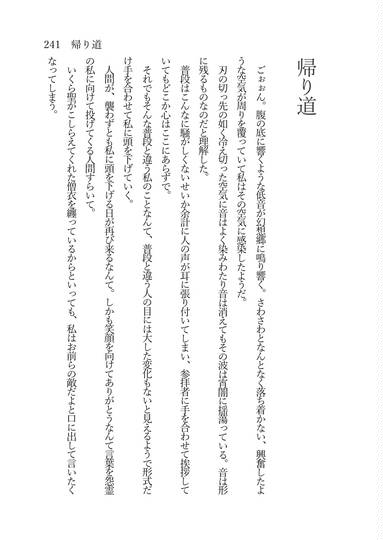 241 帰り道
帰り道
　ごぉぉん。腹の底に響くような低音が幻想郷に鳴り響く。さわさわとなんとなく落ち着かない、興奮したよ
うな空気が周りを覆っていて私はその空気に感染したようだ。
　刃の切っ先の如く冷え切った空気に音はよく染みわたり音は消えてもその波は宵闇に揺蕩っている。音は形
に残るものなのだと理解した。
　普段はこんなに騒がしくないせいか余計に人の声が耳に張り付いてしまい、参拝者に手を合わせて挨拶して
いてもどこか心はここにあらずで。
　それでもそんな普段と違う私のことなんて、普段と違う人の目には大した変化もないと見えるようで形式だ
け手を合わせて私に頭を下げていく。
　人間が、襲わずとも私に頭を下げる日が再び来るなんて。しかも笑顔を向けてありがとうなんて言葉を怨霊
の私に向けて投げてくる人間すらいて。
　いくら聖がこしらえてくれた僧衣を纏っているからといっても、私はお前らの敵だよと口に出して言いたく
なってしまう。